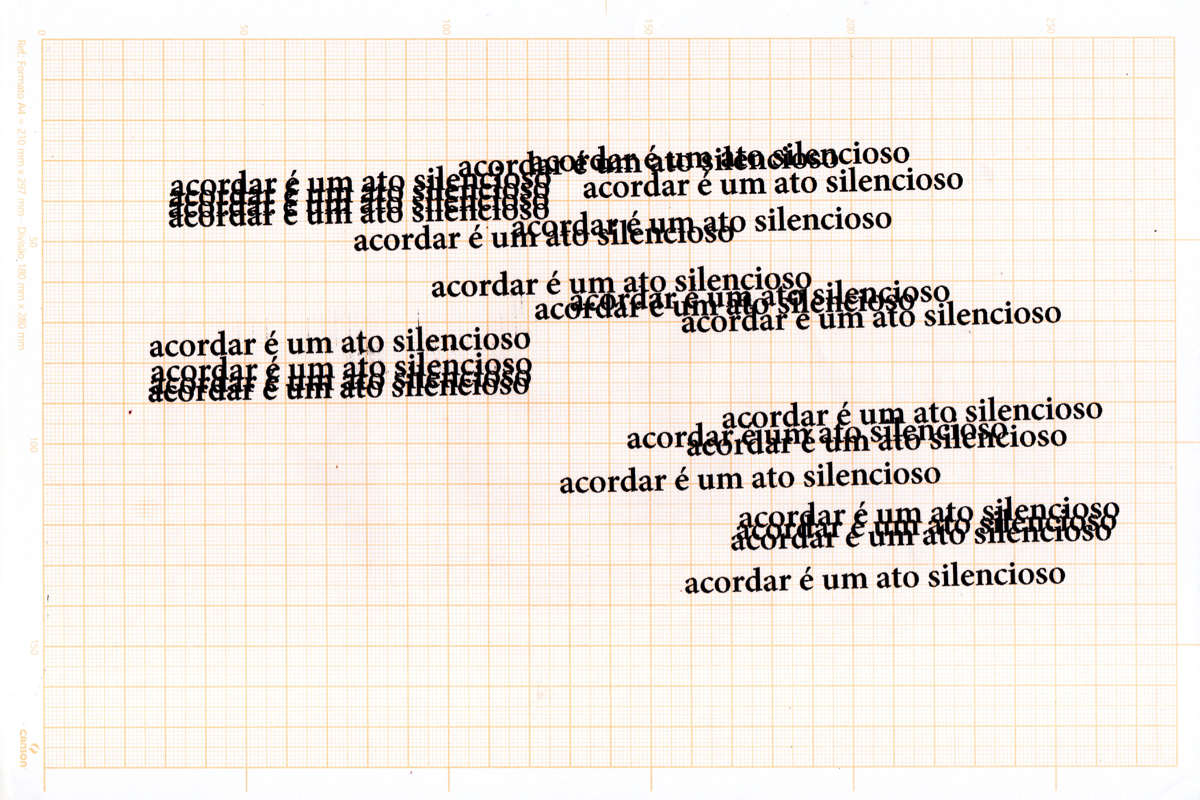 0
50
100
150
200
250
Ref. Formato A4 = 210 mm x 297 mm Divisão 180 mm x 280 mm
acordar é um ato silencioso
acordar é um ato silencioso
acordar é um ato silencioso
acordar é um ato silencioso
acordar é um ato silencioso
acordar é um ato silencioso
acordar é um ato silencioso
acordar é um ato silencioso
acordar é um ato silencioso
50
acordar é um ato silencioso
acordar é um ato silencioso
acordar é um ato silencioso
acordar é um ato silencioso
acordar é um ato silencioso
acordar é um ato silencioso
acordar é um ato silencioso
acordar é um ato silencioso
acordar é um ato silencioso
acordar é um ato silencioso
acordar é um ato silencioso
100
acordar é um ato silencioso
acordar é um ato silencioso
acordar é um ato silencioso
acordar é um ato silencioso
acordar é um ato silencioso
150
CANSON